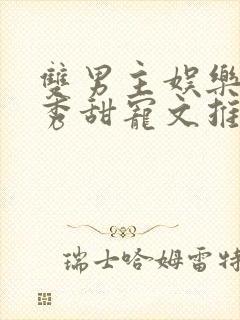 雙男主娛樂
秀甜寵文推
瑞士哈姆雷特